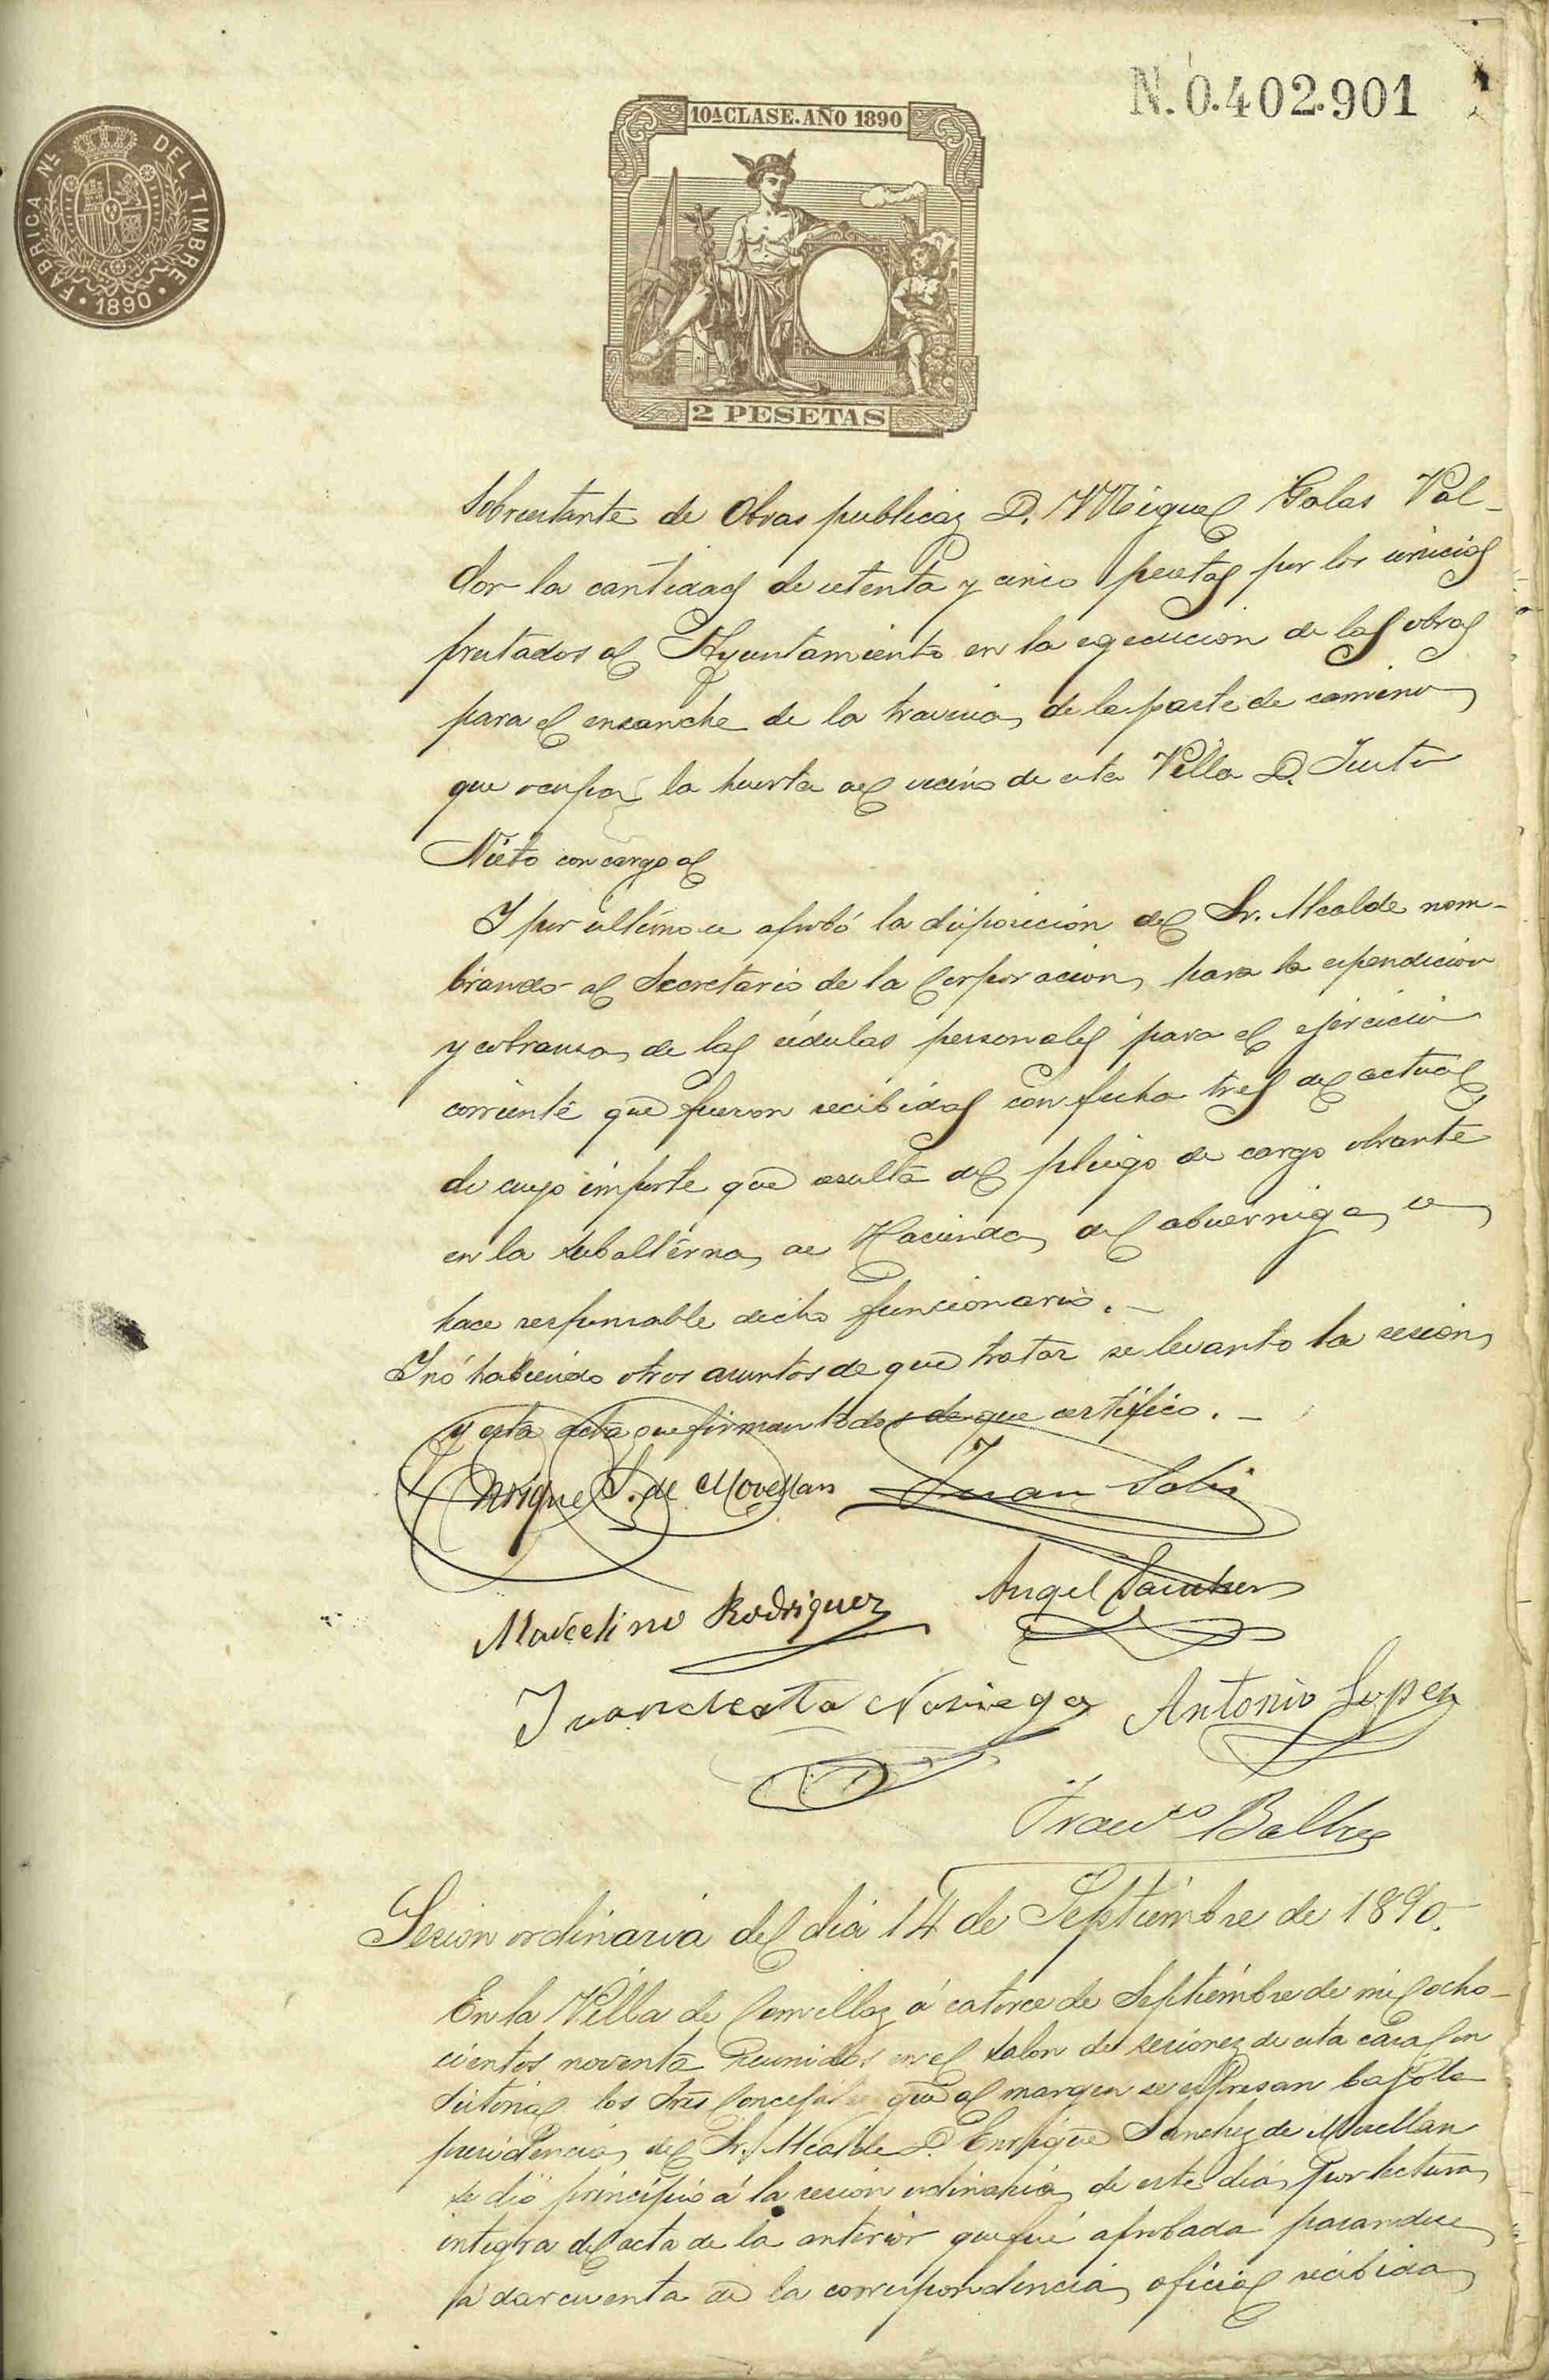 N. 0.402.901
10ª CLASE. AÑO 1890
FABRICA NL. DEL TIMBRE
1890
2 PESETAS
Sobrestante de Obras publicas D. Miguel Salas Val-
dor la cantidad de setenta y cinco pesetas por los servicios
prestados al Ayuntamiento en la egecucion de las obras
para el ensanche de la travesia de la parte de camino
que ocupa la huerta del vecino de esta Villa D. Justo
Nieto con cargo al
Y por ultimo se aprobó la disposicion del Sr. Alcalde nom-
brando al Secretario de la Corporacion para la espendicion
y cobranza de las cédulas personales para el ejercicio
corriente que fueron recibidas con fecha tres del actual
de cuyo importe que resulta del pliego de cargo obrante
en la subalterna de Hacienda de Cabuerniga se
hace responsable dicho funcionario. -
Y nó habiendo otros asuntos de que tratar se levanto la sesion
y esta acta que firman todos de que certifico. -
Enrique S. de Movellan Juan Solis
Marcelino Rodriguez Angel Sanchez
Juan de la Noriega Antonio Lopez
Franco
Sesion ordinaria del dia 14 de Septiembre de 1890.
En la Villa de Comillas á catorce de Septiembre de mil ocho-
cientos noventa Reunidos en el salon de sesiones de esta casa Con
sistorial los Sres Concejales que al margen se espresan bajo la
presidencia del Sr. Alcalde D. Enrique Sanchez de Movellan
se dió principio á la sesion ordinaria de este dia por lectura
integra del acta de la anterior que fué aprobada pasandose
á dar cuenta de la correspondencia oficial recibida